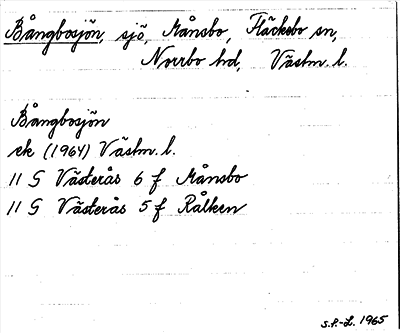 Bångbosjön, sjö, Månsbo, Fläckebo sn,
Norrbo hd, Västm. l.
Bångbosjön
ek (1964) Västm. l.
11 G Västerås 6 f Månsbo
11 G Västerås 5 f Rålken
S.P.-L. 1965